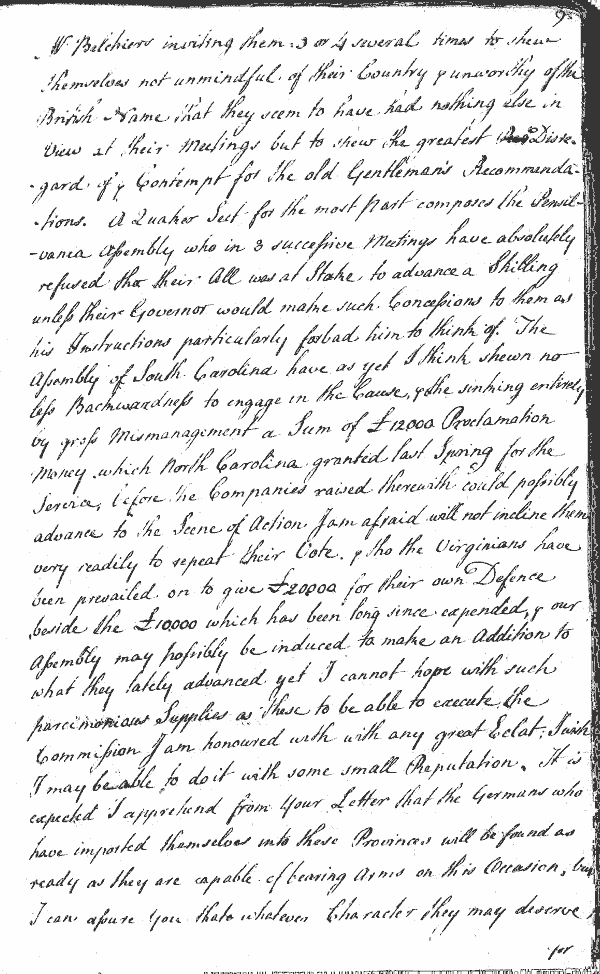 9
Mr Belchiers inviting them 3 or 4 several times to shew
themselves not unmindful of their Country & unworthy of the
British Name that they seem to have had nothing else in
View at their Meetings but to shew the greatest Disre-
-gard of & Contempt for the old Gentleman's Recommenda-
-tions. A Quaker Sect for the most part composes the Pensil-
-vania Assembly who in 3 successive Meetings have absolutely
refused tho their All was at Stake to advance a Shilling
unless their Governor would make such Concessions to them as
his Instructions particularly forbad him to think of. The
Assembly of South Carolina have as yet I think shewn no
less Backwardness to engage in the Cause, & the sinking entirely
by gross Mismanagement a Sum of £12000 Proclamation
Money which North Carolina granted last Spring for the
Service, before the Companies raised therewith could possibly
advance to the Scene of Action I am afraid will not incline them
very readily to repeat their Vote. & tho the Virginians have
been prevailed on to give £20000 for their own Defence
beside the £10000 which has been long since expended, & our
Assembly may possibly be induced to make an Addition to
what they lately advanced yet I cannot hope with such
parcimonious Supplies as these to be able to execute the
Commission I am honoured with with any great Eclat, I wish
I may be able to do it with some small Reputation. It is
expected I apprehend from Your Letter that the Germans who
have imported themselves into these Provinces will be found as
ready as they are capable of bearing Arms on this Occasion, but
I can assure You that whatever Character they may deserve
for